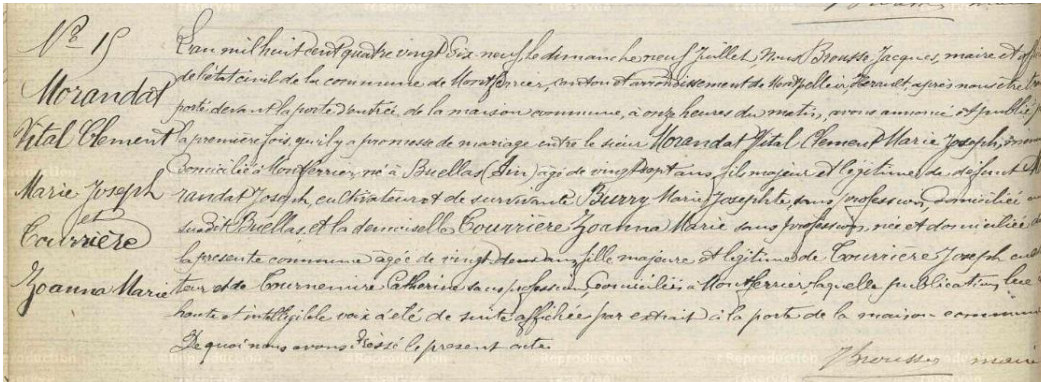 Nº 15
Morandat
Vital Clement
Marie Joseph
et
Courrière
Zoanna Marie
L'an mil huit cent quatre vingt dix neuf, le dimanche neuf Juillet Nous Brousse Jacques, maire et
de l'état civil de la commune de Montferrier, canton et arrondissement de Montpellier, Herault, après nous être
porté devant la porte d'entrée de la maison commune, à onze heures du matin, avons annoncé et publié
la première fois, qu'il y a promesse de mariage entre le sieur Morandat Vital Clement Marie Joseph,
domicilié à Montferrier, né à Buellas (Ain) agé de vingt sept ans, fils majeur et légitime de défunt
randat Joseph, cultivateur et de survivante Burry Marie Josephte, sans profession, domiciliée
susdit Buellas, et la demoiselle Courrière Zoanna Marie sans profession, née et domiciliée
la presente commune agée de vingt deux ans, fille majeure et légitime de Courrière Joseph
teur et de Tournemire Catherine sans profession, domiciliés à Montferrier, laquelle publication, lue
haute et intelligible voix a été de suite affichée par extrait à la porte de la maison commune
De quoi nous avons dressé le present acte.
Brousse maire